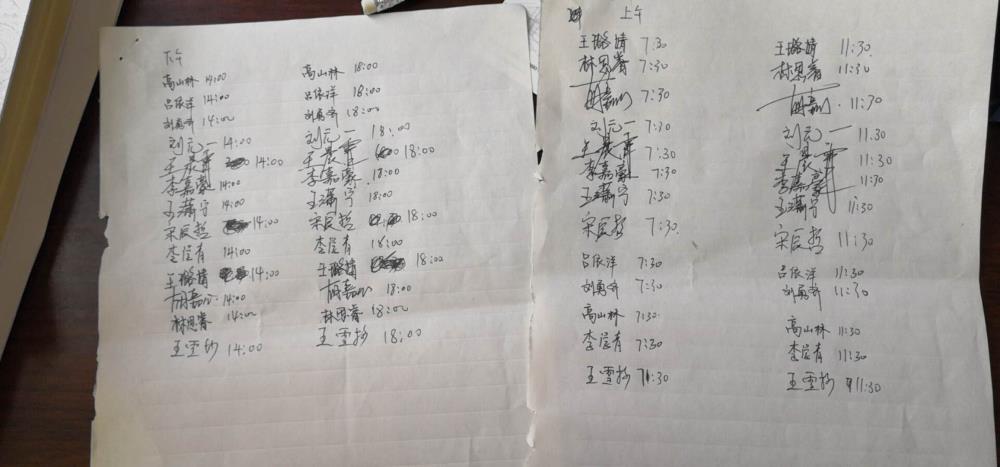 下午
高山林 14:00 高山林 18:00
吕依洋 14:00 吕依洋 18:00
刘勇 14:00 刘勇 18:00
刘元一 14:00 刘元一 18:00
王晨 14:00 王晨 18:00
李嘉豪 14:00 李嘉豪 18:00
王潇宁 14:00 王潇宁 18:00
宋辰哲 14:00 宋辰哲 18:00
李 青 14:00 李 青 18:00
王璐婧 14:00 王璐婧 18:00
胡嘉 14:00 胡嘉 18:00
林恩睿 14:00 林恩睿 18:00
王雪 14:00 王雪 18:00
上午
王璐婧 7:30 王璐婧 11:30
林恩睿 7:30 林恩睿 11:30
胡嘉 7:30 胡嘉 11:30
刘元一 7:30 刘元一 11:30
王晨 7:30 王晨 11:30
李嘉豪 7:30 李嘉豪 11:30
王潇宁 7:30 王潇宁 11:30
宋辰哲 7:30 宋辰哲 11:30
吕依洋 7:30 吕依洋 11:30
刘勇 7:30 刘勇 11:30
高山林 7:30 高山林 11:30
李 青 7:30 李 青 11:30
王雪 7:30 王雪 11:30